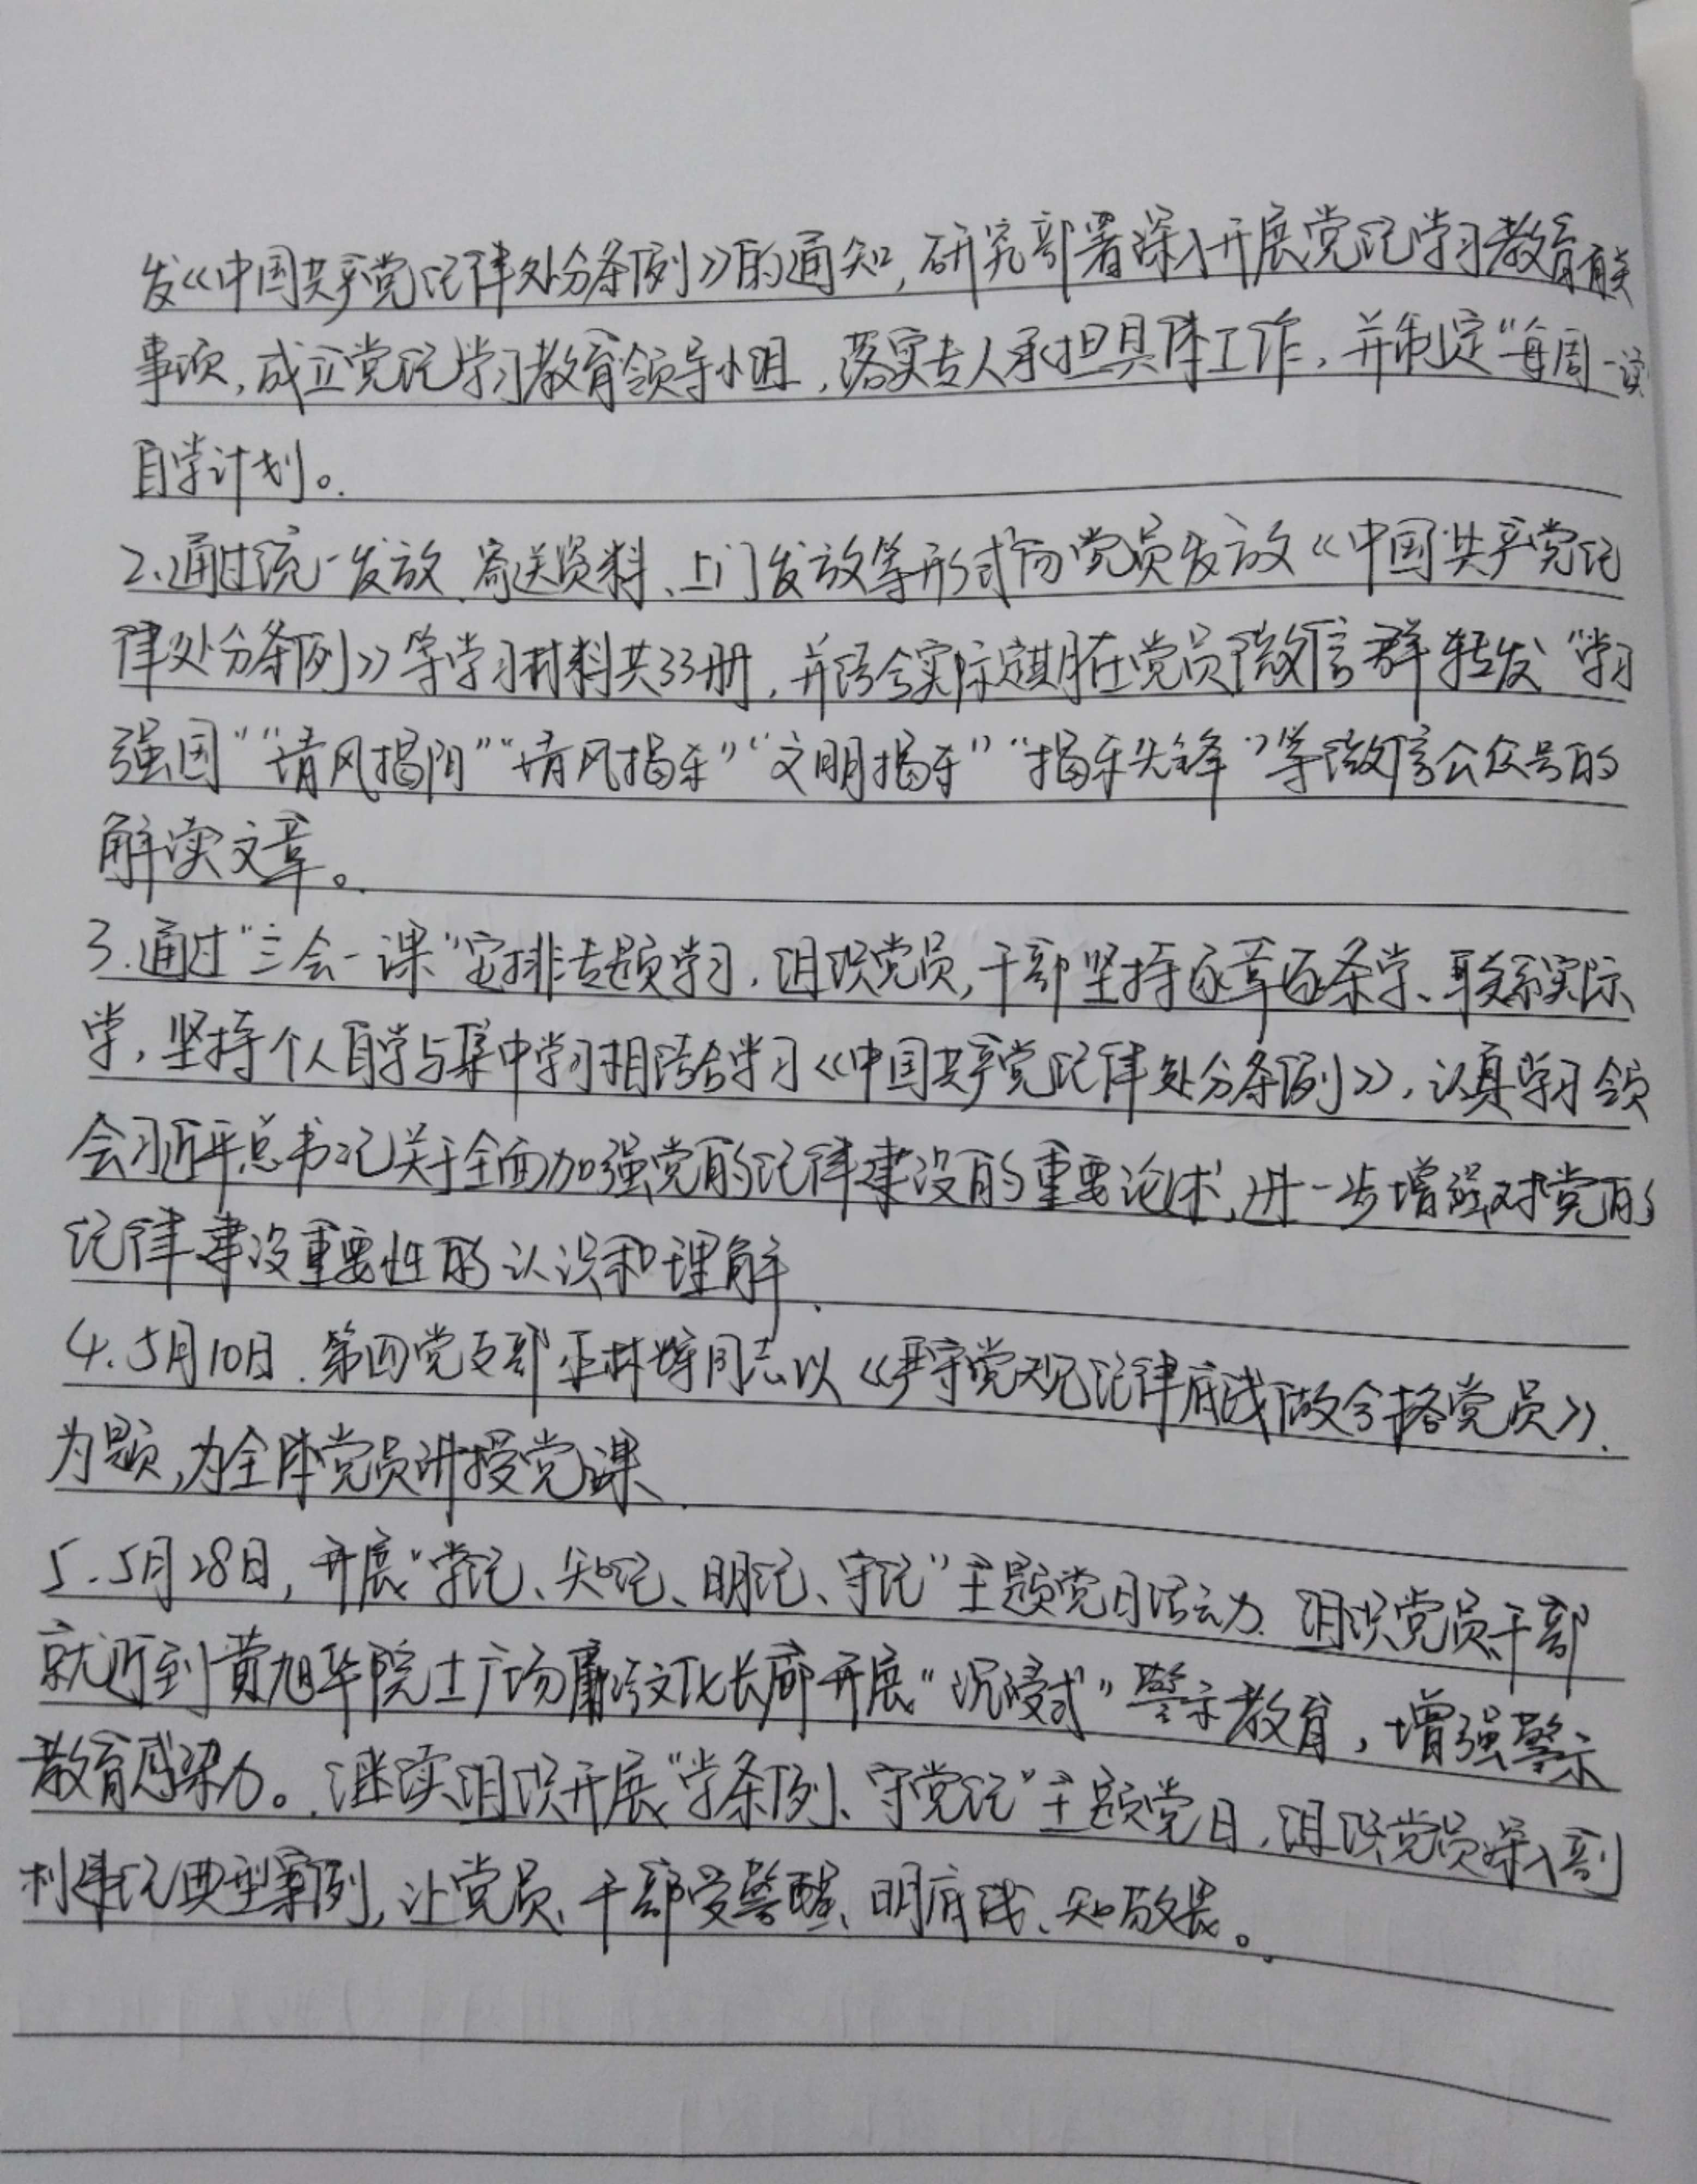 发《中国共产党纪律处分条例》的通知,研究部署深入开展党纪学习教育有关
事项,成立党纪学习教育领导小组,落实专人承担具体工作,并制定“每周一读
自学计划。
2.通过统一发放、寄送资料、上门发放等形式向党员发放《中国共产党纪
律处分条例》等学习材料共33册,并结合实际定期在党员微信群转发“学习
强国”“清风揭阳”“清风揭东”“文明揭东”“揭东先锋”等微信公众号的
解读文章。
3.通过“三会一课”安排专题学习,组织党员,干部坚持逐章逐条学、联系实际
学,坚持个人自学与集中学习相结合学习《中国共产党纪律处分条例》,认真学习领
会习近平总书记关于全面加强党的纪律建设的重要论述,进一步增强对党的
纪律建设重要性的认识和理解.
4.5月10日.第四党支部 林 同志以《严守党规纪律底线做合格党员》.
为题,为全体党员讲授党课.
5.5月28日,开展“学纪、知纪、明纪、守纪”主题党日活动.组织党员、干部
就近到黄旭华院士广场廉洁文化长廊开展“沉浸式”警示教育,增强警示
教育感染力。继续组织开展“学条例、守党纪”主题党日,组织党员深入剖
析违纪典型案例,让党员、干部受警醒、明底线、知敬畏。